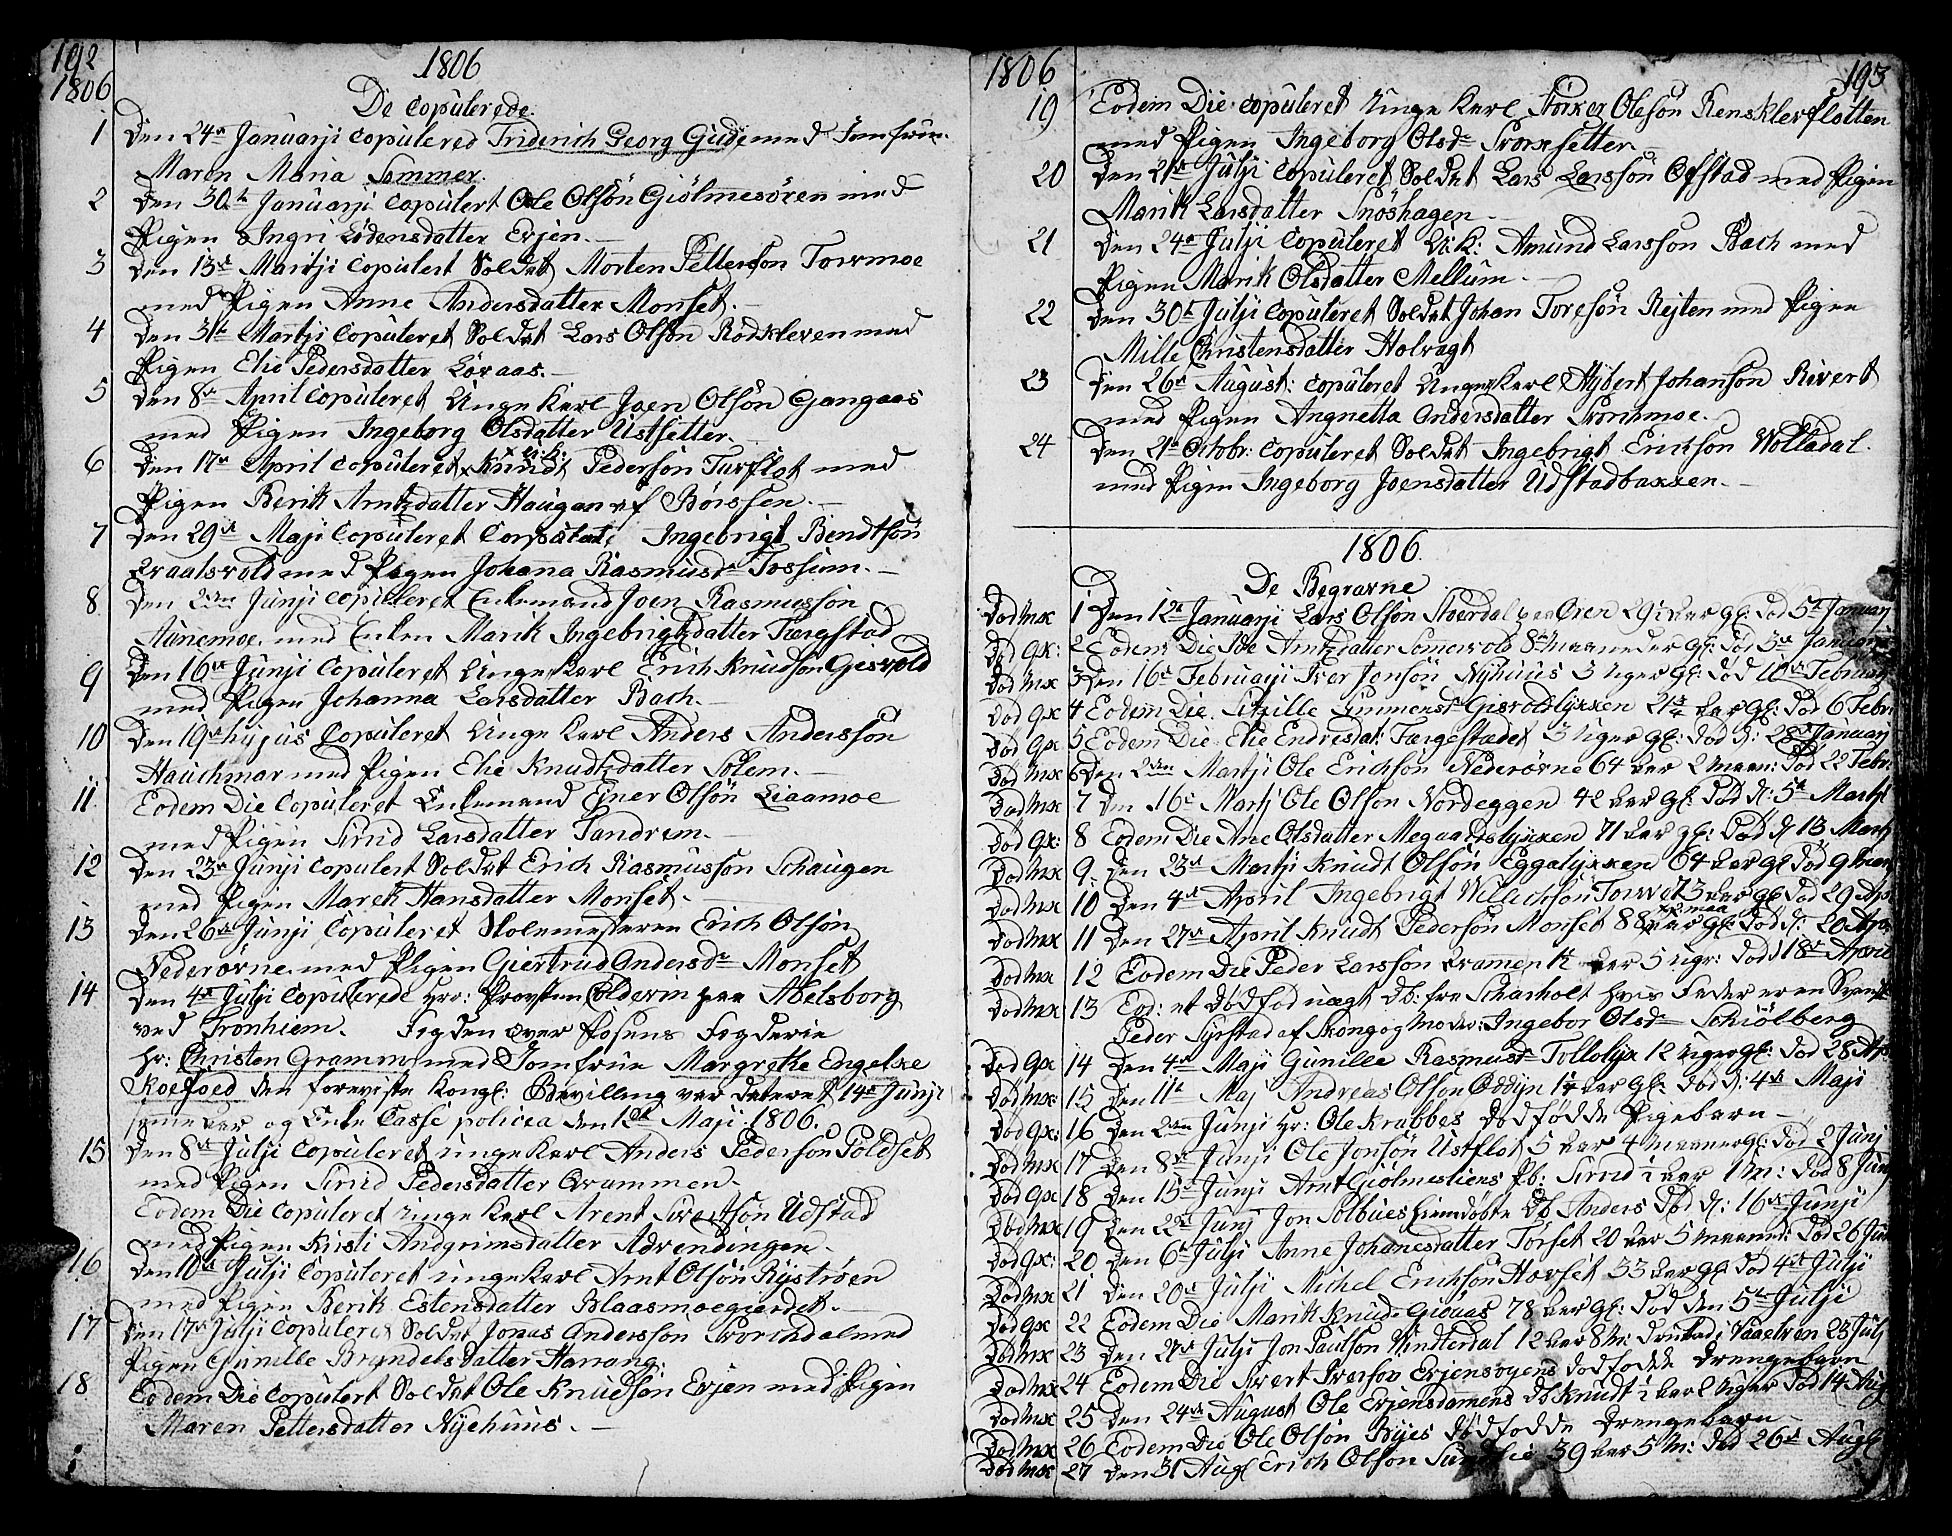 192
1806
1806
De Copulerede.
1 Den 24de Januarji Copulered Friderich Georg Gude med Jomfrue
Maren Maria Sommer.
2 Den 30te Januarji Copulert Ole Olsön Giölmesören med
Pigen Ingri Lodensdatter Evjen.
3 Den 13de Martji Copulert Soldat Morten Pettersson Torvmoe
med Pigen Anne Andersdatter Monset.
4 Den 31te Martji Copuleret Soldat Lars Olsön Rödkleven med
Pigen Elie Pedersdatter Löraas.
5 Den 8de April Copuleret Unge Karl Joen Olsön Gangaas
med Pigen Ingeborg Olsdatter Ustsetter.
6 Den 17de April Copuleret Knudt Pedersön Turflot med
Pigen Berit Arntzdatter Haugan af Börssen.
7 Den 29de Maji Copuleret Ingebrigt Bendtsön
Qvaalsvold med Pigen Johana Rasmusdr Fossum.
8 Den 2den Junji Copuleret Enkemand Joen Rasmussön
Aunemoe med Enken Marit Ingebrigtzdatter Færgstad
9 Den 16de Junji Copuleret Unge Karl Erich Knudsön Gisvold
med Pigen Johanna Larsdatter Bach.
10 Den 19de hujus Copuleret Unge Karl Anders Anderssön
Hauchmar med Pigen Elie Knudtzdatter Solem.
11 Eodem Die Copuleret Enkemand Ejner Olsön Liaamoe
med Pigen Sirid Larsdatter Tandrem.
12 Den 23de Junji Copulert Soldat Erich Rasmussön Schaugen
med Pigen Marit Hansdatter Monset.
13 Den 26de Junji Copuleret Skolemesteren Erich Olsön
Nederövne med Pigen Giertrud Andersdr Monset
14 Den 4de Julji Copulerede Hrr: Provsten Colderin paa Abelsborg
ved Tronhiem. Fogden over Fosens Fogderie
Hr: Christen Gramm med Jomfrue Margrethe Engelke
Koefoed den foreviste Kongl: Bevilling var dateret 14de Junji
samme aar og Enke Casse policea den 12te Maji 1806.
15 Den 8de Julji Copuleret unge Karl Anders Pedersön Foldset
med Pigen Sirid Pedersdatter Qvammen.
Eodem Die Copuleret unge Karl Arent Sivertsön Udstad
med Pigen Kirsti Andgrimsdatter
16 Den 10de Julji Copuleret unge Karl Arnt Olsön Ryströen
med Pigen Berit Estensdatter Blaasmoegierdet.
17 Den 17de Julji Copuleret Soldat Jonas Anderssön Svorchdal med
Pigen Gunille Bryndelsdatter Harrang.
18 Eodem Die Copulert Soldat Ole Knudsön Evjen med Pigen
Maren Pettersdatter Nyehuus.
1806
193
19 Eodem Die copuleret Unge Karl Störker Olesön Rensklevflotten
med Pigen Ingeborg Olsdr Svorksetter
20 Den 21de Julji Copuleret Soldat Lars Larssön Ofstad med Pigen
Marit Larsdatter Snöshagen
21 Den 24de Julji Copuleret U:K: Amund Larsson Bach med
Pigen Marit Olsdatter Mellum
22 Den 30te Julji Copuleret Soldat Johan Toresön Rejten med Pigen
Mille Christensdatter Holvagt
23 Den 26de August: copuleret Unge Karl Hybert Johansön Rivert
med Pigen Angnetta Andersdatter Svorchmoe.
24 Den 21de Octobr: Copuleret Soldat Ingebrigt Erichsön Wolladal
med Pigen Ingeborg Joensdatter Udstadbakken.
1806
De Begravne
Död Mk 1 Den 12te Januarji Lars Olsön Stverdal paa Øren 29 aar gl: Död 5te Januarj
Död Qk: 2 Eodem Die Arntzdatter Somervold 8 maaneder gl: Död 3de Januarji
Död Mk 3 Den 16de Februarji Iver Jensön Nyhuus 3 Uger gl: Död 10de Februarj
Död Qk 4 Eodem Die Sitzille Simmensdr Gisvoldlykken aar gl: Död 6 Febr
Död Qk 5 Eodem Die Elie Endresdat: Færgestadet 3 Uger gl: Död d: 28de Januarj
Död Mk 6 Den 2den Martji Ole Erichsön Nederövne 64 aar 2 maan: Död 22 Febr:
Död Mk 7 Den 16de Martj Ole Olsön Nordeggen 42 aar gl: Död d: 5te Martji
Död Qk: 8 Eodem Die Ane Olsdatter Megaardslykken 71 aar gl: Död d 13 Martj
Död Mk 9 Den 23de Martji Knudt Olsön Eggalykken 64 aar gl Död 9
Död Mk 10 Den 4de April Ingebrigt Willichsön Torvet 73 aar gl Död 29
Död Mk 11 Den 27de April Knudt Pedersön Monset 88 aar gl: Död d: 20 Apr
Död Mk 12 Eodem Die Peder Larssön Qvamen aar 5 uger: Död 18de April
Död Mk 13 Eod: et Dödföd uægt Db: fra Scharholt hvis Fader er en Svensk
Peder Syrstad af Skong og Moder: Ingebor Olsdr Schiölberg
Död Qk 14 Den 4de Maji Gunille Rasmusdr Tollolyk 12 Uger gl: Död 28 Apr
Död Mk: 15 Den 11te Maj Andreas Olson Oddyn aar gl: Död d: 4de Maji
Död Qk: 16 Den 2den Junji Hr: Ole Krabbes Dödfödde Pigebarn
Död Mk 17 Den 8de Junji Ole Jonsön Ustflot 5 aar 4 maaner gl: Död 2 Junj
Död Qk 18 Den 15de Junji Arnt Giölmesliens Pb: Sirid 1 aar 1 M: Död 8 Junj
Död Mk 19 Den 22de Junj Jon Solbues hiemdöbte Db Anders Död d: 16de Junji
Död Qk: 20 Den 6te Julji Anne Johanesdatter Torset 20 aar 5 maaned: Död 26 Jun
Död Mk 21 Den 20de Julji Michel Erichsön Hovset 33 aar gl Död 4de Julji
Död Qk 22 Eodem Die Marit Knuds: Giöaas 78 aar gl: Död den 5te Julji
Död Mk 23 Den 27de Julji Jon Paulsön Windterdal 12 aar 8 M: Druknd i Vaaelven 23 Julj
Död Mk 24 Eodem Die Sivert Iversön Evjensöyens Dödfödde Drengebarn
Död Mk 25 Den 24de August Ole Evjensdamens Db Knudt 1 aar Uger Död 14 Aug
Död Mk 26 Eodem Die Ole Olsön Byes Dödfodde Drengebarn
Död Mk 27 Den 31 Augl Erich Olsön 39 aar 5 M: Död 26de Augl